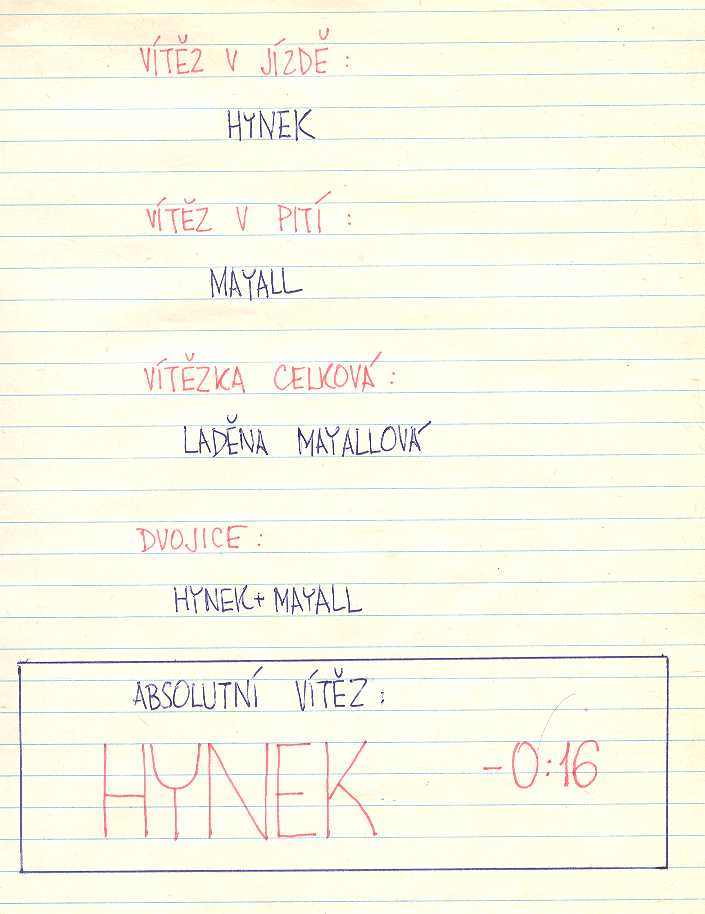 VÍTĚZ V JÍZDĚ :
HYNEK
VÍTĚZ V PITÍ :
MAYALL
VÍTĚZKA CELKOVÁ :
LADĚNA MAYALLOVÁ
DVOJICE :
HYNEK + MAYALL
ABSOLUTNÍ VÍTĚZ :
HYNEK -0:16